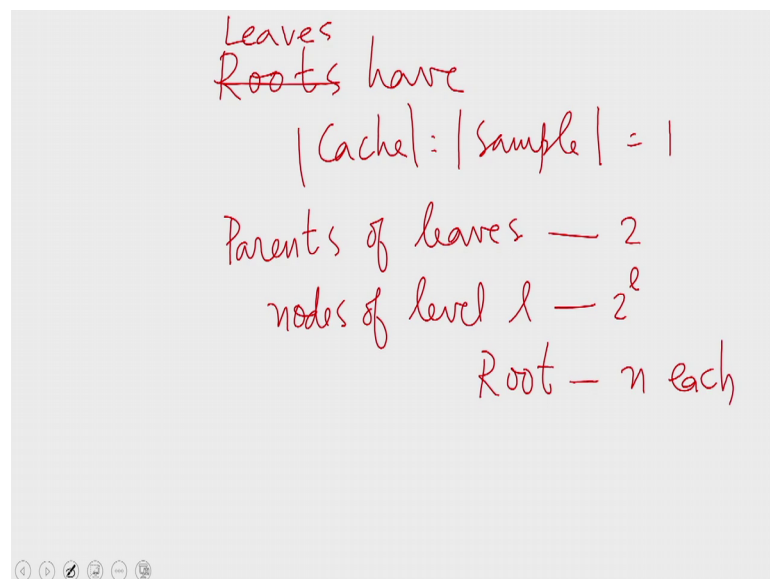 Leaves
Roots have
|Cache| = |Sample| = 1
Parents of leaves — 2
nodes of level l — 2^l
Root — n each